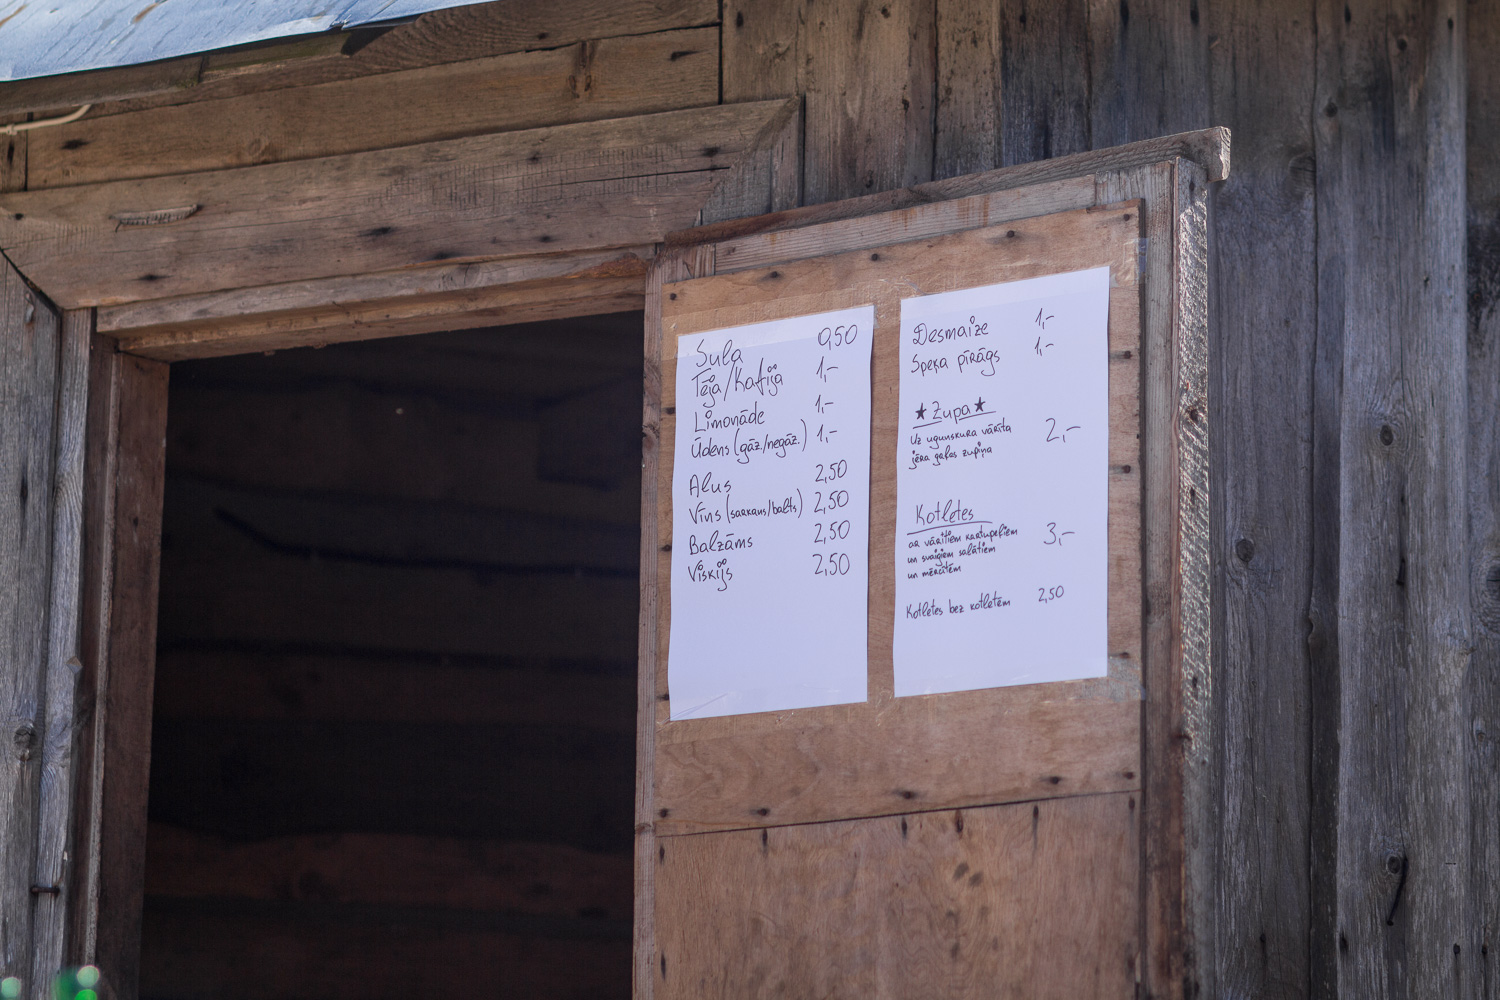 Sula 0,50
Tēja/Kafija 1,-
Limonāde 1,-
Ūdens (gāz./negāz.) 1,-
Alus 2,50
Vīns (sarkans/balts) 2,50
Balzāms 2,50
Viskijs 2,50
Desmaize 1,-
Speķa pīrāgs 1,-
★Zupa★
Uz ugunskura vārīta 2,-
jēra gaļas zupiņa
Kotletes
ar vārītiem kartupeļiem 3,-
un svaigiem salātiem
un mērcītēm
Kotletes bez kotletēm 2,50